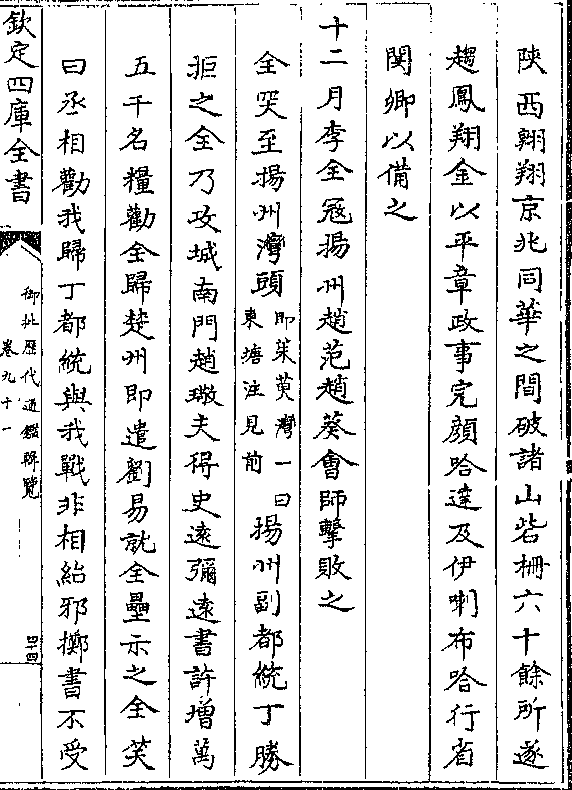 陝西翺翔京兆同華之間破諸山砦柵六十餘所遂
趨鳳翔金以平章政事完顔哈達及伊喇布哈行省
閿鄉以備之
十二月李全冦揚州趙范趙葵會師擊敗之
全哭至揚州灣頭即茱萸灣一曰東塘注見前揚州副都統丁勝
拒之全乃攻城南門趙璥夫得史逺彌逺書許增萬
五千名糧勸全歸楚州即遣劉易就全壘示之全笑
曰丞相勸我歸丁都統與我戰非相紿邪擲書不受
欽定四庫全書
御批歷代通鑑輯覽
卷九十一
四十四